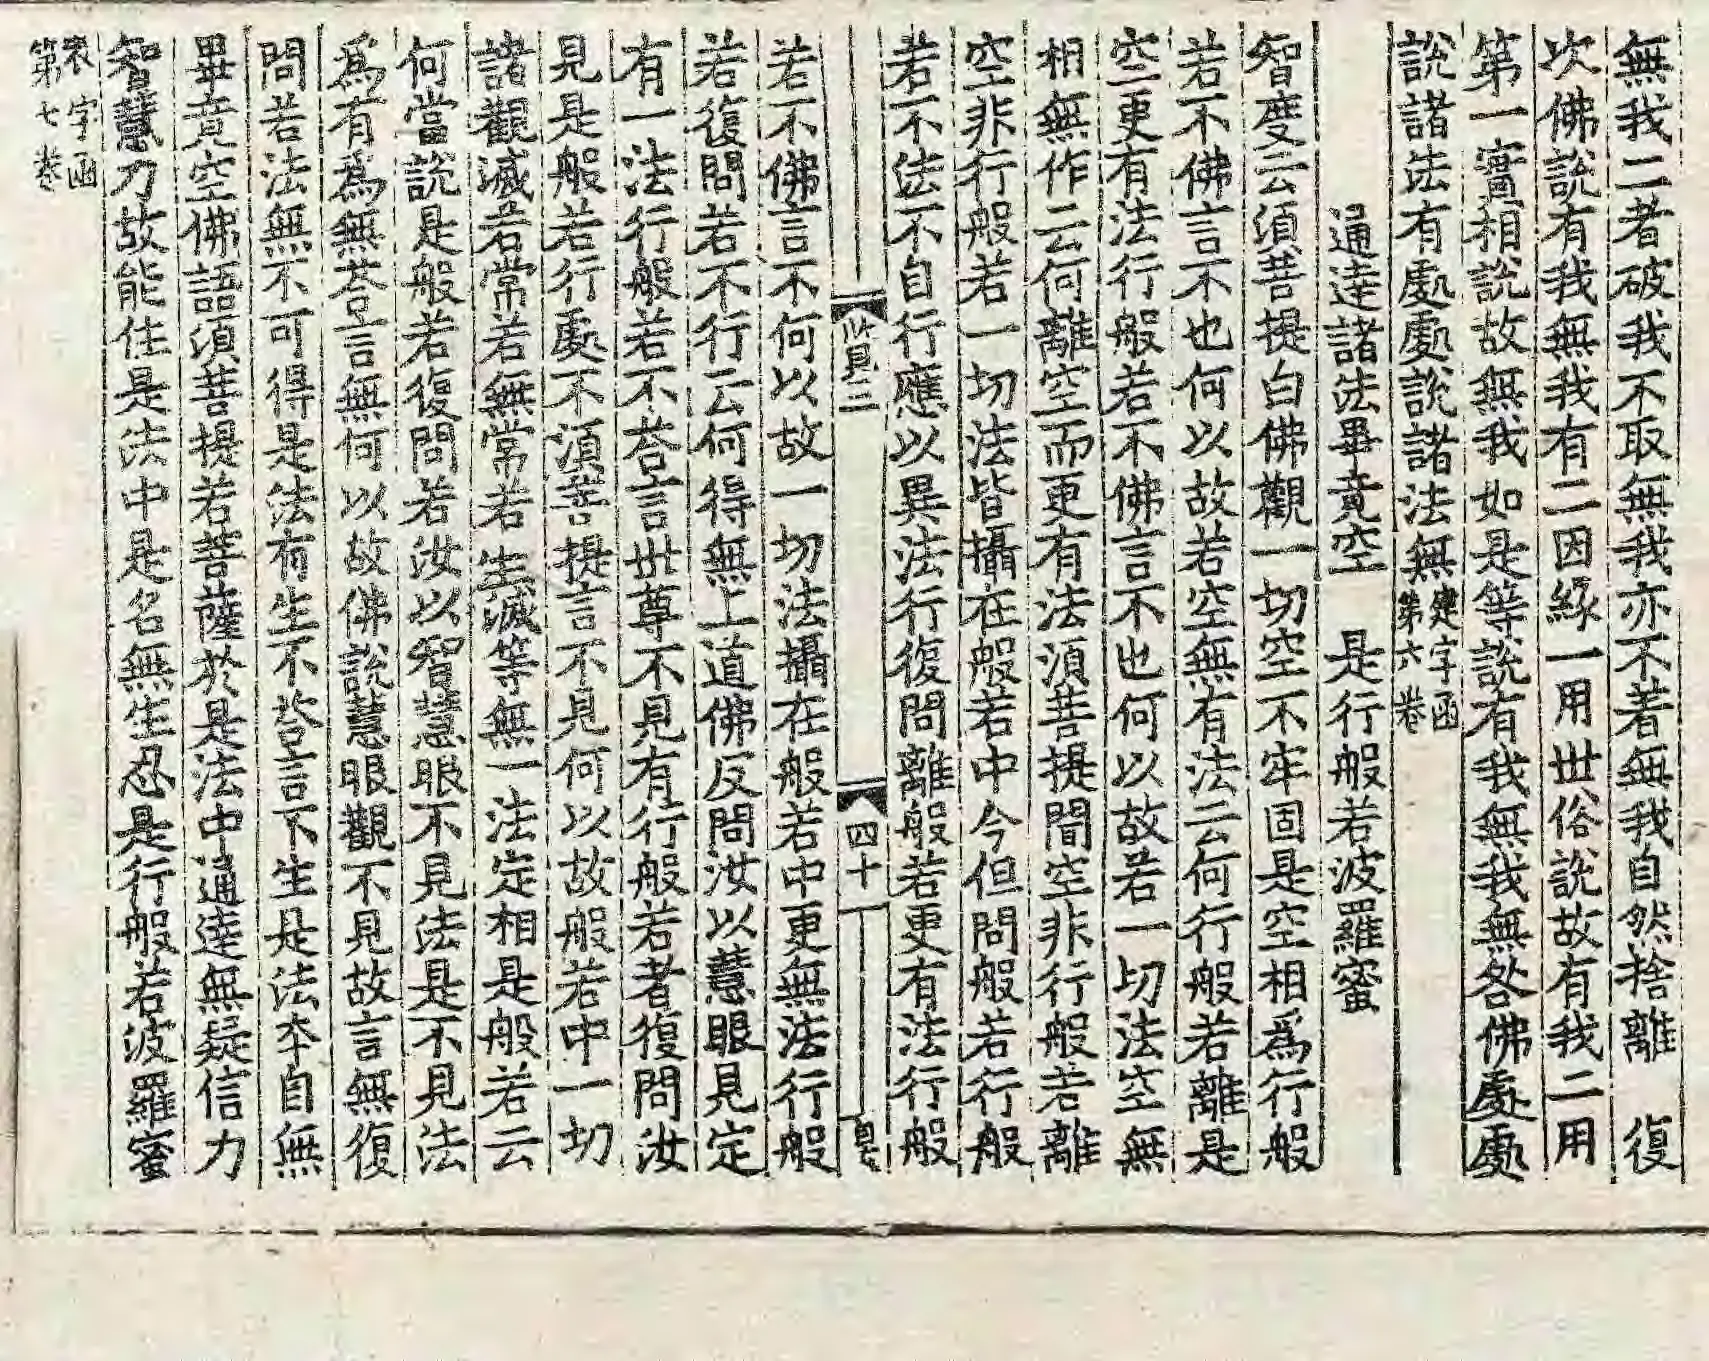 無我二者破我不取無我亦不著無我自然捨離　復
次佛說有我無我有二因緣一用世俗說故有我二用
第一實相說故無我如是等說有我無我無咎佛處處
說諸法有處處說諸法無建字函第六卷
通達諸法畢竟空　是行般若波羅蜜
智度云須菩提白佛觀一切空不牢固是空相爲行般
若不佛言不也何以故若空無有法云何行般若離是
空更有法行般若不佛言不也何以故若一切法空無
相無作云何離空而更有法須菩提問空非行般若離
空非行般若一切法皆攝在般若中今但問般若行般
若不法不自行應以異法行復問離般若更有法行般
四十
若不佛言不何以故一切法攝在般若中更無法行般
若復問若不行云何得無上道佛反問汝以慧眼見定
有一法行般若不荅言世尊不見有行般若者復問汝
見是般若行處不須菩提言不見何以故般若中一切
諸觀滅若常若無常若生滅等無一法定相是般若云
何當說是般若復問若汝以智慧眼不見法是不見法
爲有爲無荅言無何以故佛說慧眼觀不見故言無復
問若法無不可得是法有生不荅言不生是法本自無
畢竟空佛語須菩提若菩薩於是法中通達無疑信力
智慧力故能住是法中是名無生忍是行般若波羅蜜
字函
第七卷